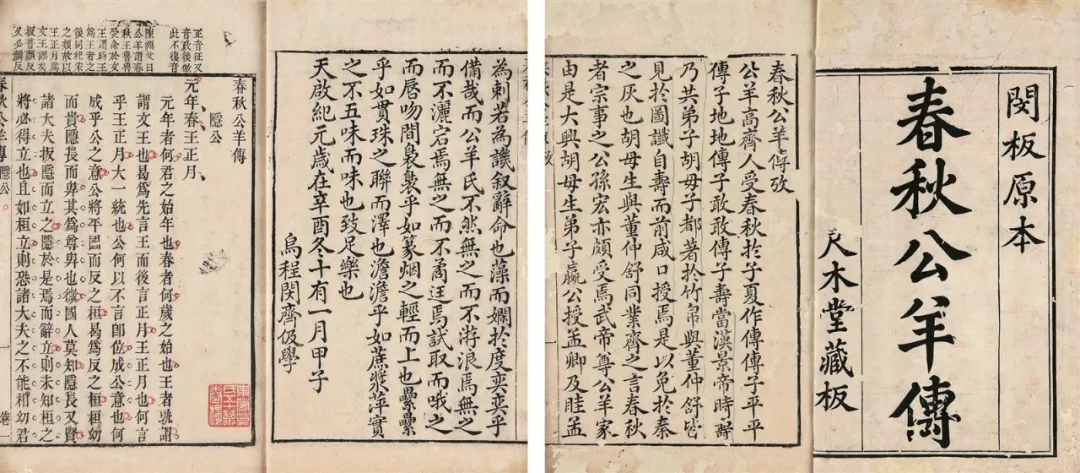 閔板原本
春秋公羊傳
尺木堂藏板
春秋公羊傳攷
公羊高齊人受春秋於子夏作傳傳子平平
傳子地地傳子敢敢傳子壽當漢景帝時壽
乃共弟子胡母子都著於竹帛與董仲舒皆
見於圖讖自壽而前咸口授焉是以免於秦
之灰也胡母生與董仲舒同業齊之言春秋
者宗事之公孫宏亦頗受焉武帝尊公羊家
由是大興胡母生弟子嬴公授孟卿及眭孟
為刺若為譏叙辭命也藻而嫻於度奕奕乎
備哉而公羊氏不然無之而不游浪焉無之
而不灑宕焉無之而不矞迋焉試取而哦之
而唇吻間裊裊乎如篆烟之輕而上也纍纍
乎如貫珠之聯而澤也澹澹乎如蔗漿萍實
之不五味而味也致足樂也
天啟紀元歲在辛酉冬十有一月甲子
烏程閔齊伋學
正音征又
音政後倣
此不復音
公羊謂春
秋王魯魯
王正月為
春秋公羊傳
隱公
元年春王正月
元年者何君之始年也春者何歲之始也王者孰謂
謂文王也曷為先言王而後言正月王正月也何言
乎王正月大一統也公何以不言即位成公意也何
成乎公之意公將平國而反之桓曷為反之桓桓幼
而貴隱長而卑其為尊卑也微國人莫知隱長又賢
諸大夫扳隱而立之隱於是焉而辭立則未知桓之
將必得立也且如桓立則恐諸大夫之不能相幼君
春秋公羊傳
隱公
卷一